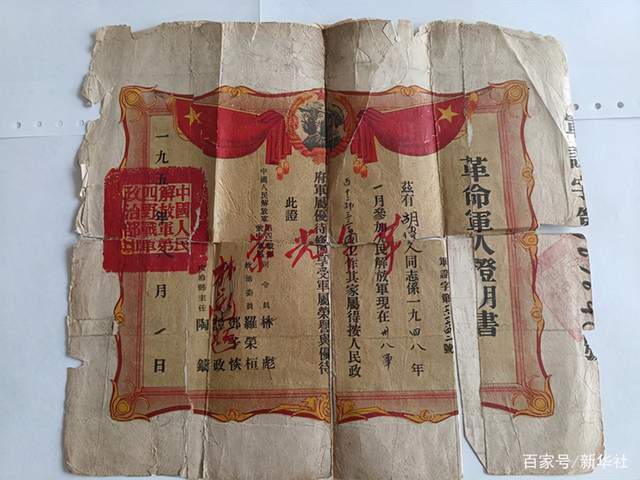 革命軍人證明書
軍證字第
號
茲有胡 久同志係一九四八年
一月參加人民解放軍現在卅八軍
工作其家屬得按人民政
府軍屬優待條例享受軍屬榮理與優待
此證
光榮
中國人民解放軍第四野戰軍
司令員 林彪
政治委員 羅榮桓
鄧子恢
譚政
政治部主任 陶鑄
一九五 年 月 日
中国人民
解放軍第
四野戰軍
政治部
百家号/新华社